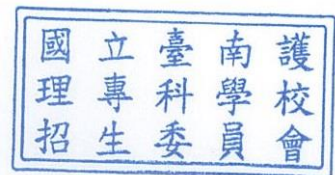 國立臺南護
理專科學校
招生委員會